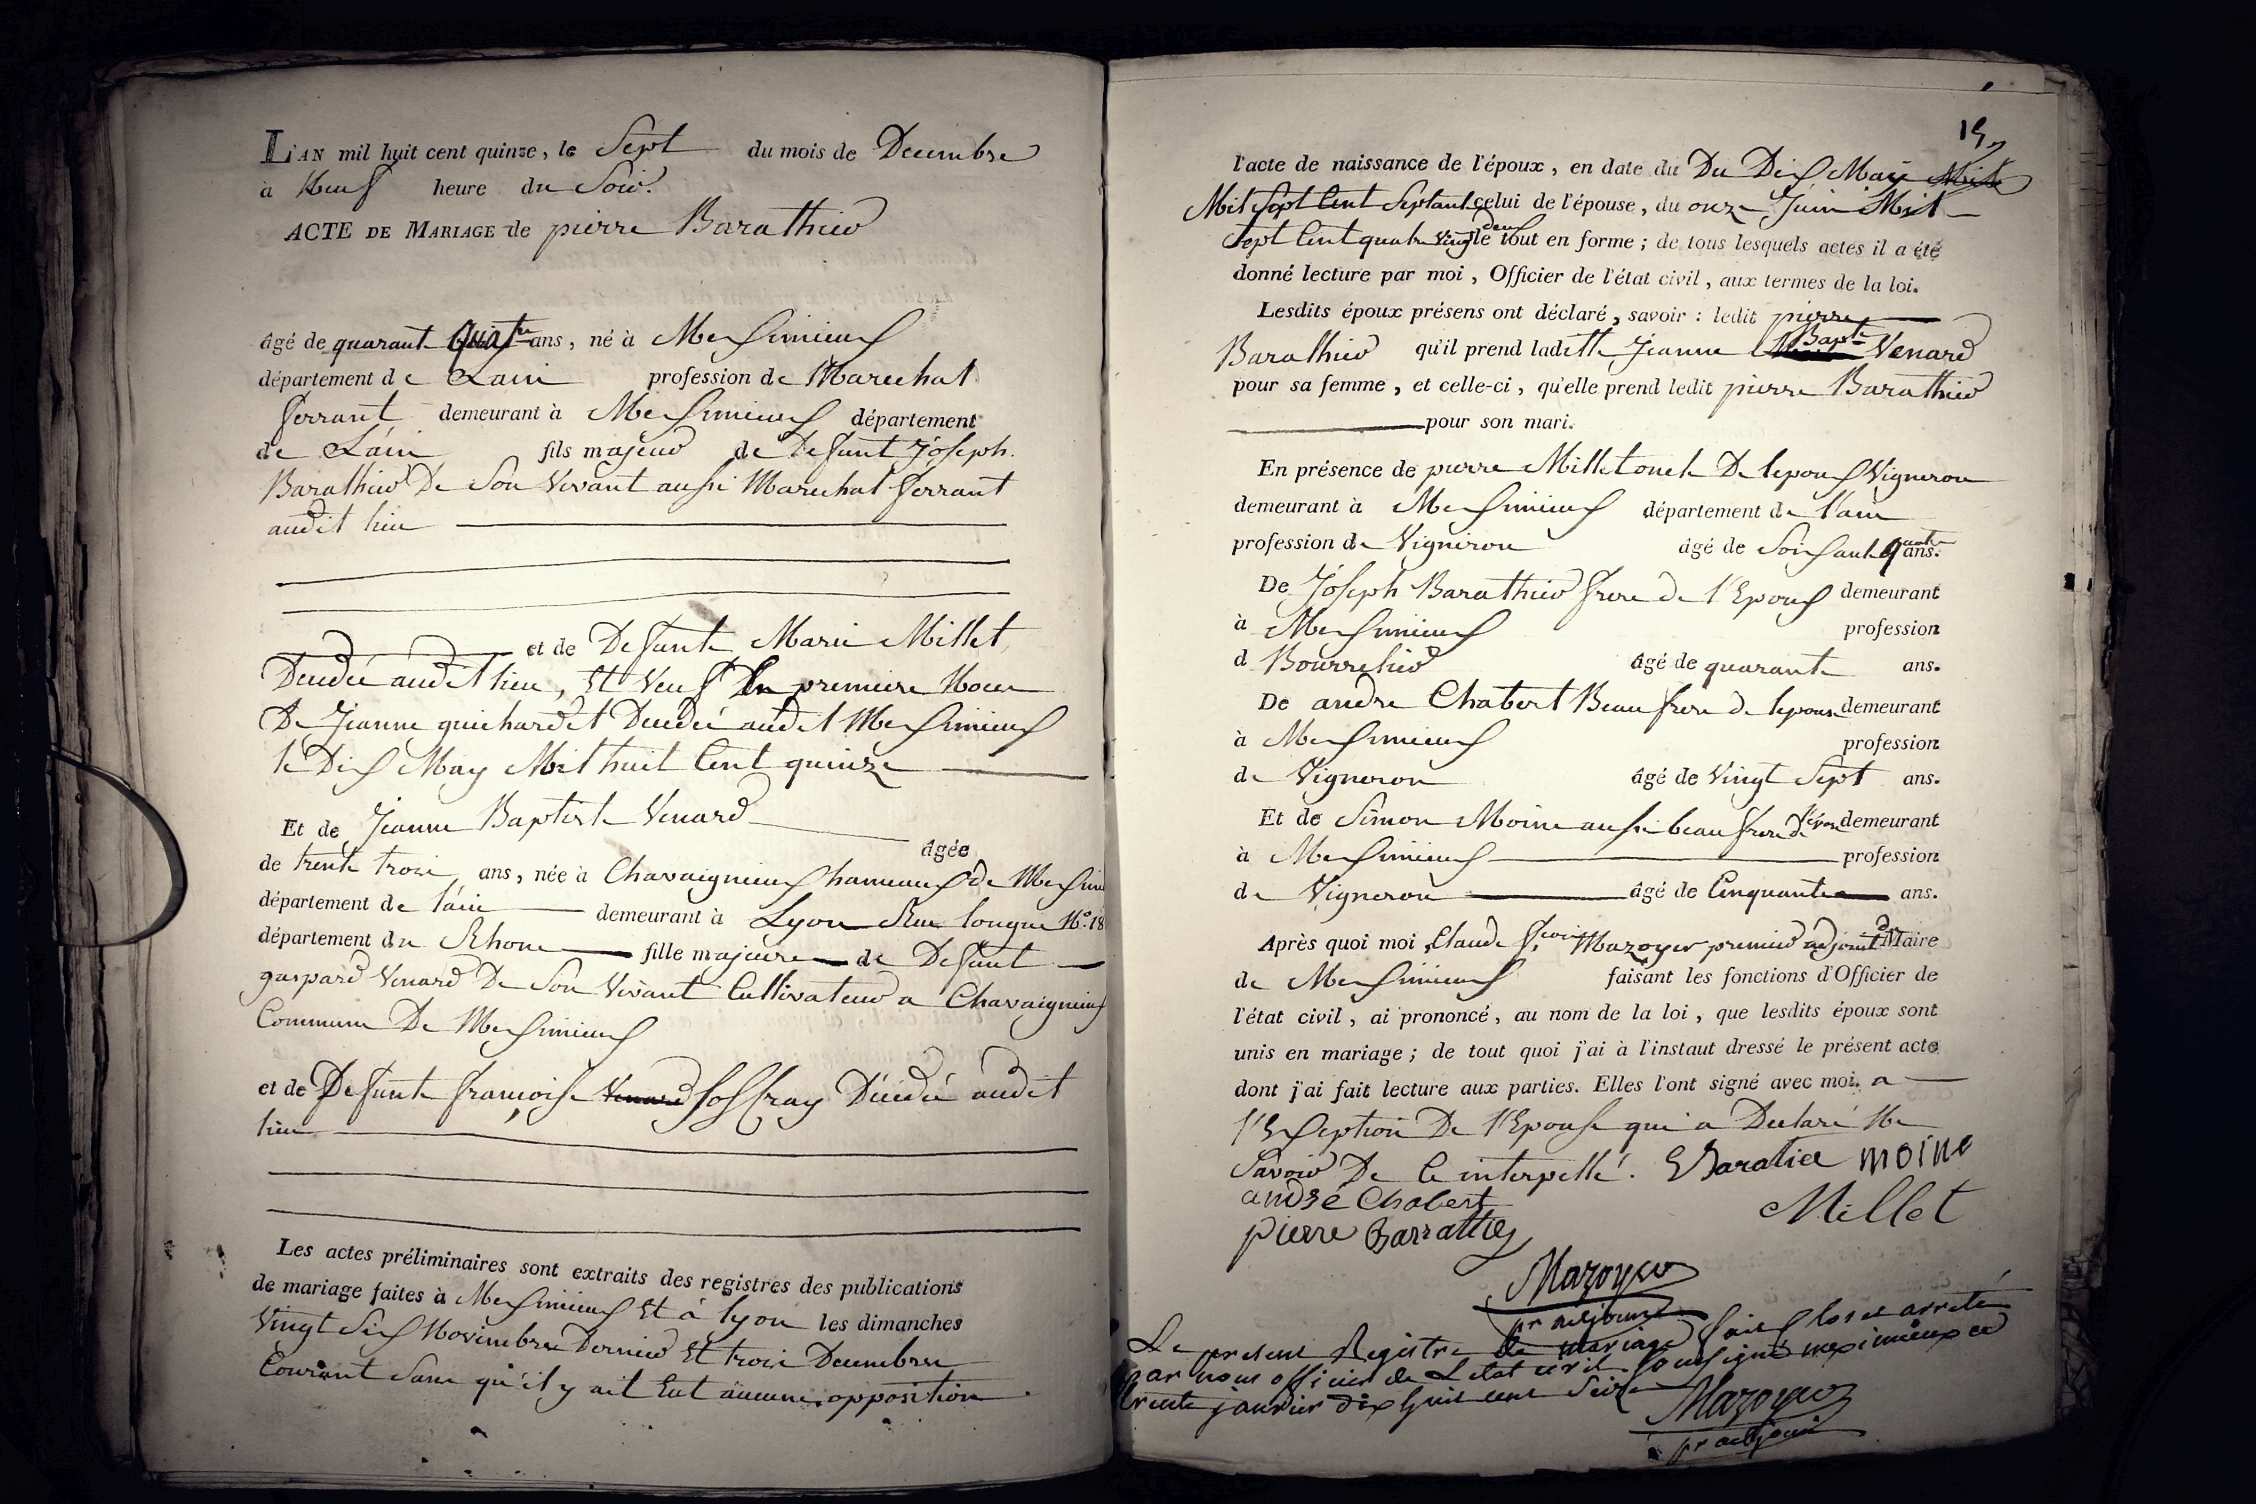 L'AN mil huit cent quinze, le Sept du mois de Decembre
à Neuf heure du Soir.
ACTE DE MARIAGE de pierre Barathier
âgé de quarante quatre ans, né à Meximieux
département de Lain profession de Marechal
ferrant demeurant à Meximieux département
de Lain fils majeur de Defunt Joseph
Barathier De Son Vivant aussi Marechal ferrant
audit lieu
et de Defunte Marie Millet
Decedée audit lieu, Et Veuf En premiere Noces
De Jeanne guichardet Decedée audit Meximieux
le Dix May Mil huit Cent quinze
Et de Jeanne Baptiste Venard
âgée
de trente trois ans, née à Chavaigneux hameaux de Meximi
département de l'ain demeurant à Lyon Rue longue No. 18
département du Rhone fille majeure de Defunt
gaspard Venard De Son Vivant Cultivateur a Chavaigneux
Commune De Meximieux
et de Defunte françoise Venard Joffray Décédée audit
lieu
Les actes préliminaires sont extraits des registres des publications
de mariage faites à Meximieux Et à lyon les dimanches
Vingt Six Novembre Dernier Et trois Decembre
Courant Sans qu'il y ait Eut aucune opposition
15
l'acte de naissance de l'époux, en date du Du Dix May Mil
Mil Sept Cent Septante celui de l'épouse, du onze Juin Mil
Sept Cent quatre Vingt deux le tout en forme; de tous lesquels actes il a été
donné lecture par moi, Officier de l'état civil, aux termes de la loi.
Lesdits époux présens ont déclaré, savoir: ledit pierre
Barathier qu'il prend ladette Jeanne Bapte Venard
pour sa femme, et celle-ci, qu'elle prend ledit pierre Barathier
pour son mari.
En présence de pierre Millet oncle De lepoux Vigneron
demeurant à Meximieux département de l'ain
profession de Vigneron âgé de Soixante quatre ans.
De Joseph Barathier frere de l'Epoux demeurant
à Meximieux profession
d Bourrelier âgé de quarante ans.
De andre Chabert Beau frere de lepoux demeurant
à Meximieux profession
de Vigneron âgé de Vingt Sept ans.
Et de Simon Moine aussi beau frere de l'époux demeurant
à Meximieux profession
de Vigneron âgé de Cinquante ans.
Après quoi moi, Claude fçois Mazoyer premier adjoint Dt Maire
de Meximieux faisant les fonctions d'Officier de
l'état civil, ai prononcé, au nom de la loi, que lesdits époux sont
unis en mariage; de tout quoi j'ai à l'instaut dressé le présent acte
dont j'ai fait lecture aux parties. Elles l'ont signé avec moi. a
l'Exseption De l'Epouse qui a Declaré Ne
Savoir De Ce interpellé. Baratier moine
andré Chabert Millet
pierre Barrattier
Mazoyer
pr adjoint
Le present Registre de mariage fait clos et arreté
par nous officier de L etat civil Soussigné meximieux ce
trente janvier dix huit cent Seize
Mazoyer
pr adjoint